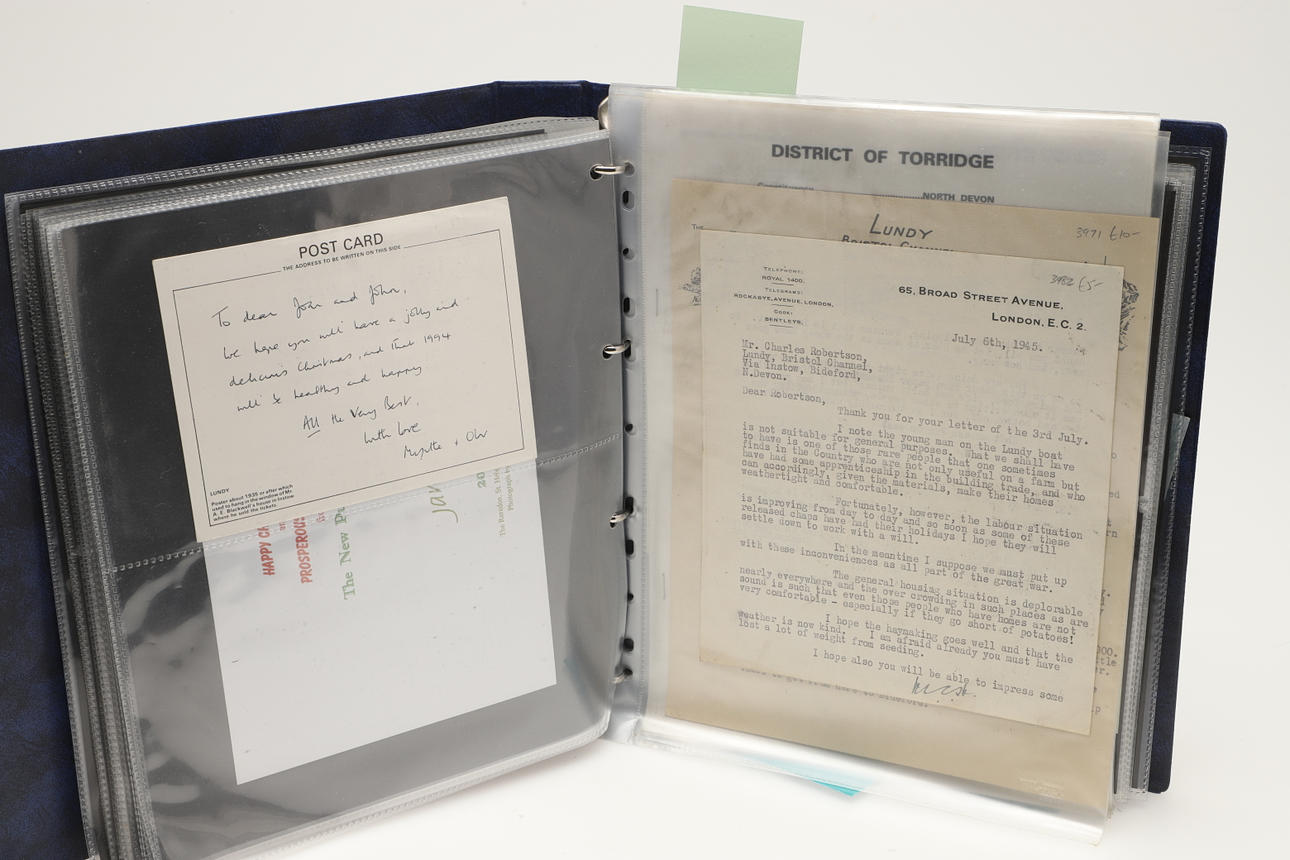 POST CARD
THE ADDRESS TO BE WRITTEN ON THIS SIDE
To dear Joan and John,
We hope you will have a jolly and
delicious Christmas, and that 1994
will be healthy and happy
All the Very Best.
With love
LUNDY
Poster about 1935 or after which
used to hang in the window of Mr.
A. E. Blackwell's house in Instow
where he sold the tickets.
HAPPY
PROSPEROUS
The New
20
Photograph
DISTRICT OF TORRIDGE
NORTH DEVON
THE
LUNDY
BRISTOL CHANNEL
3971 £10-
3982 £5-
TELEPHONE:
ROYAL 1400.
TELEGRAMS:
ROCKABYE, AVENUE, LONDON.
CODE:
BENTLEYS.
65, BROAD STREET AVENUE,
LONDON, E.C. 2.
July 6th, 1945.
Mr. Charles Robertson,
Lundy, Bristol Channel,
Via Instow, Bideford,
N.Devon.
Dear Robertson,
Thank you for your letter of the 3rd July.
I note the young man on the Lundy boat
is not suitable for general purposes. What we shall have
to have is one of those rare people that one sometimes
finds in the Country who are not only useful on a farm but
have had some apprenticeship in the building trade, and who
can accordingly, given the materials, make their homes
weathertight and comfortable.
Fortunately, however, the labour situation
is improving from day to day and so soon as some of these
released chaps have had their holidays I hope they will
settle down to work with a will.
In the meantime I suppose we must put up
with these inconveniences as all part of the great war.
The general housing situation is deplorable
nearly everywhere and the over crowding in such places as are
sound is such that even those people who have homes are not
very comfortable - especially if they go short of potatoes!
I hope the haymaking goes well and that the
weather is now kind. I am afraid already you must have
lost a lot of weight from seeding.
I hope also you will be able to impress some